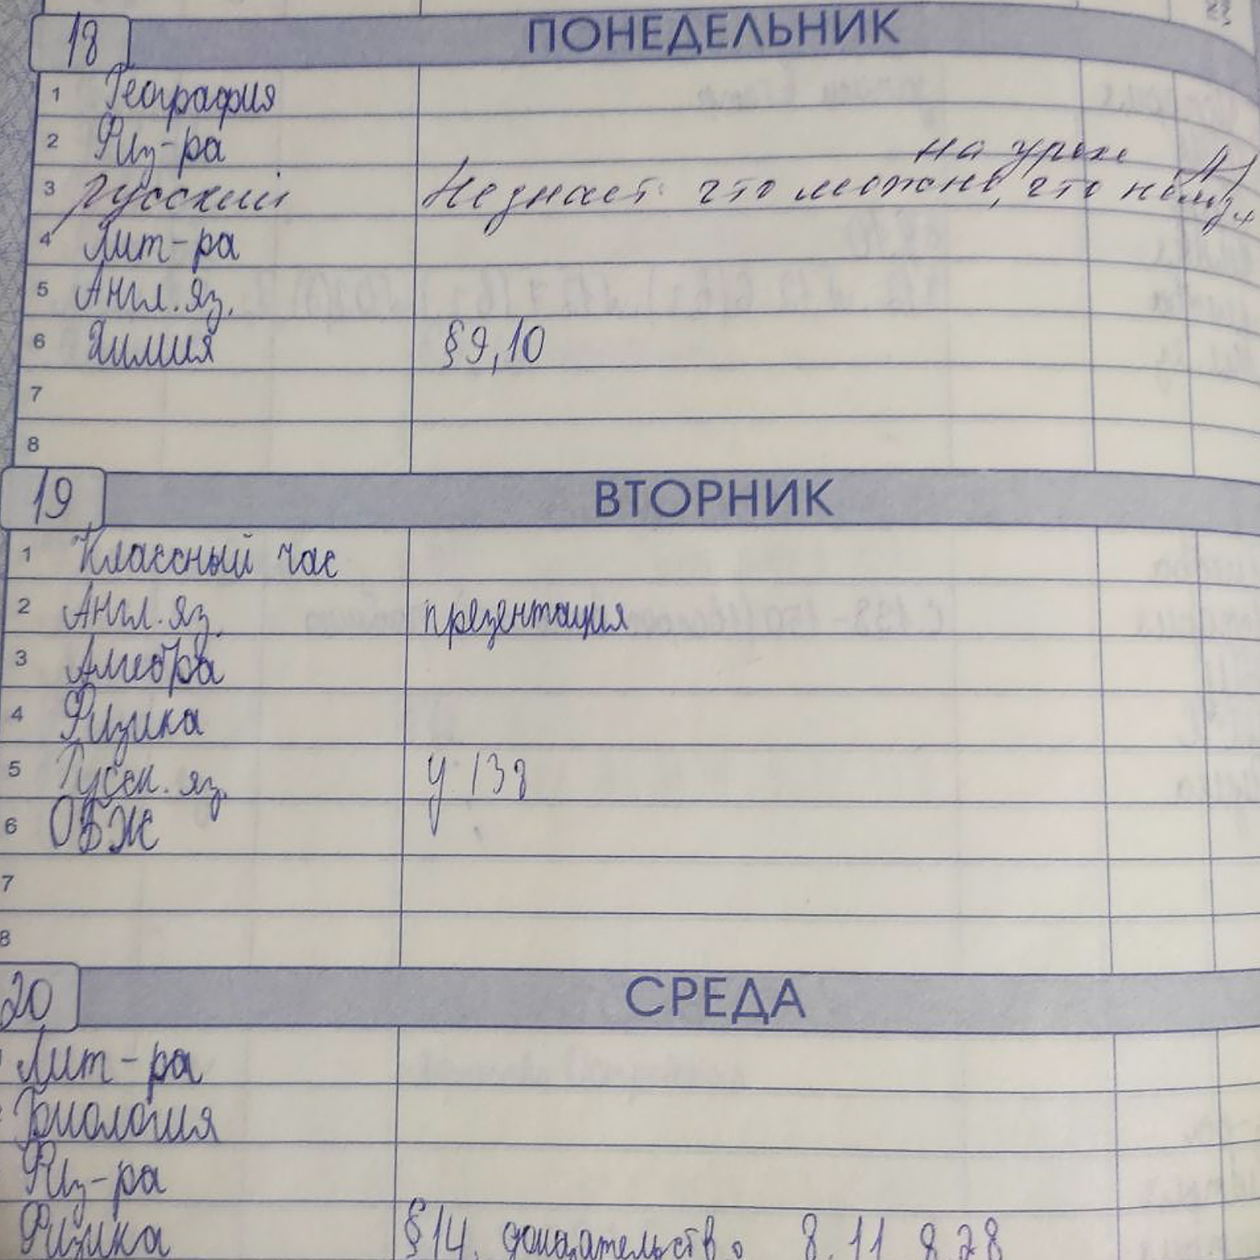 18 ПОНЕДЕЛЬНИК
1 География
2 Физ-ра
на уроке
3 Русский Не знает что можно, что нельзя
4 Лит-ра
5 Англ. яз.
6 Химия §9,10
7
8
19 ВТОРНИК
1 Классный час
2 Англ. яз. презентация
3 Алгебра
4 Физика
5 Русск. яз. у 138
6 ОБЖ
7
8
20 СРЕДА
Лит-ра
Биология
Физ-ра
Физика §14, доказательство 8.11 8.28